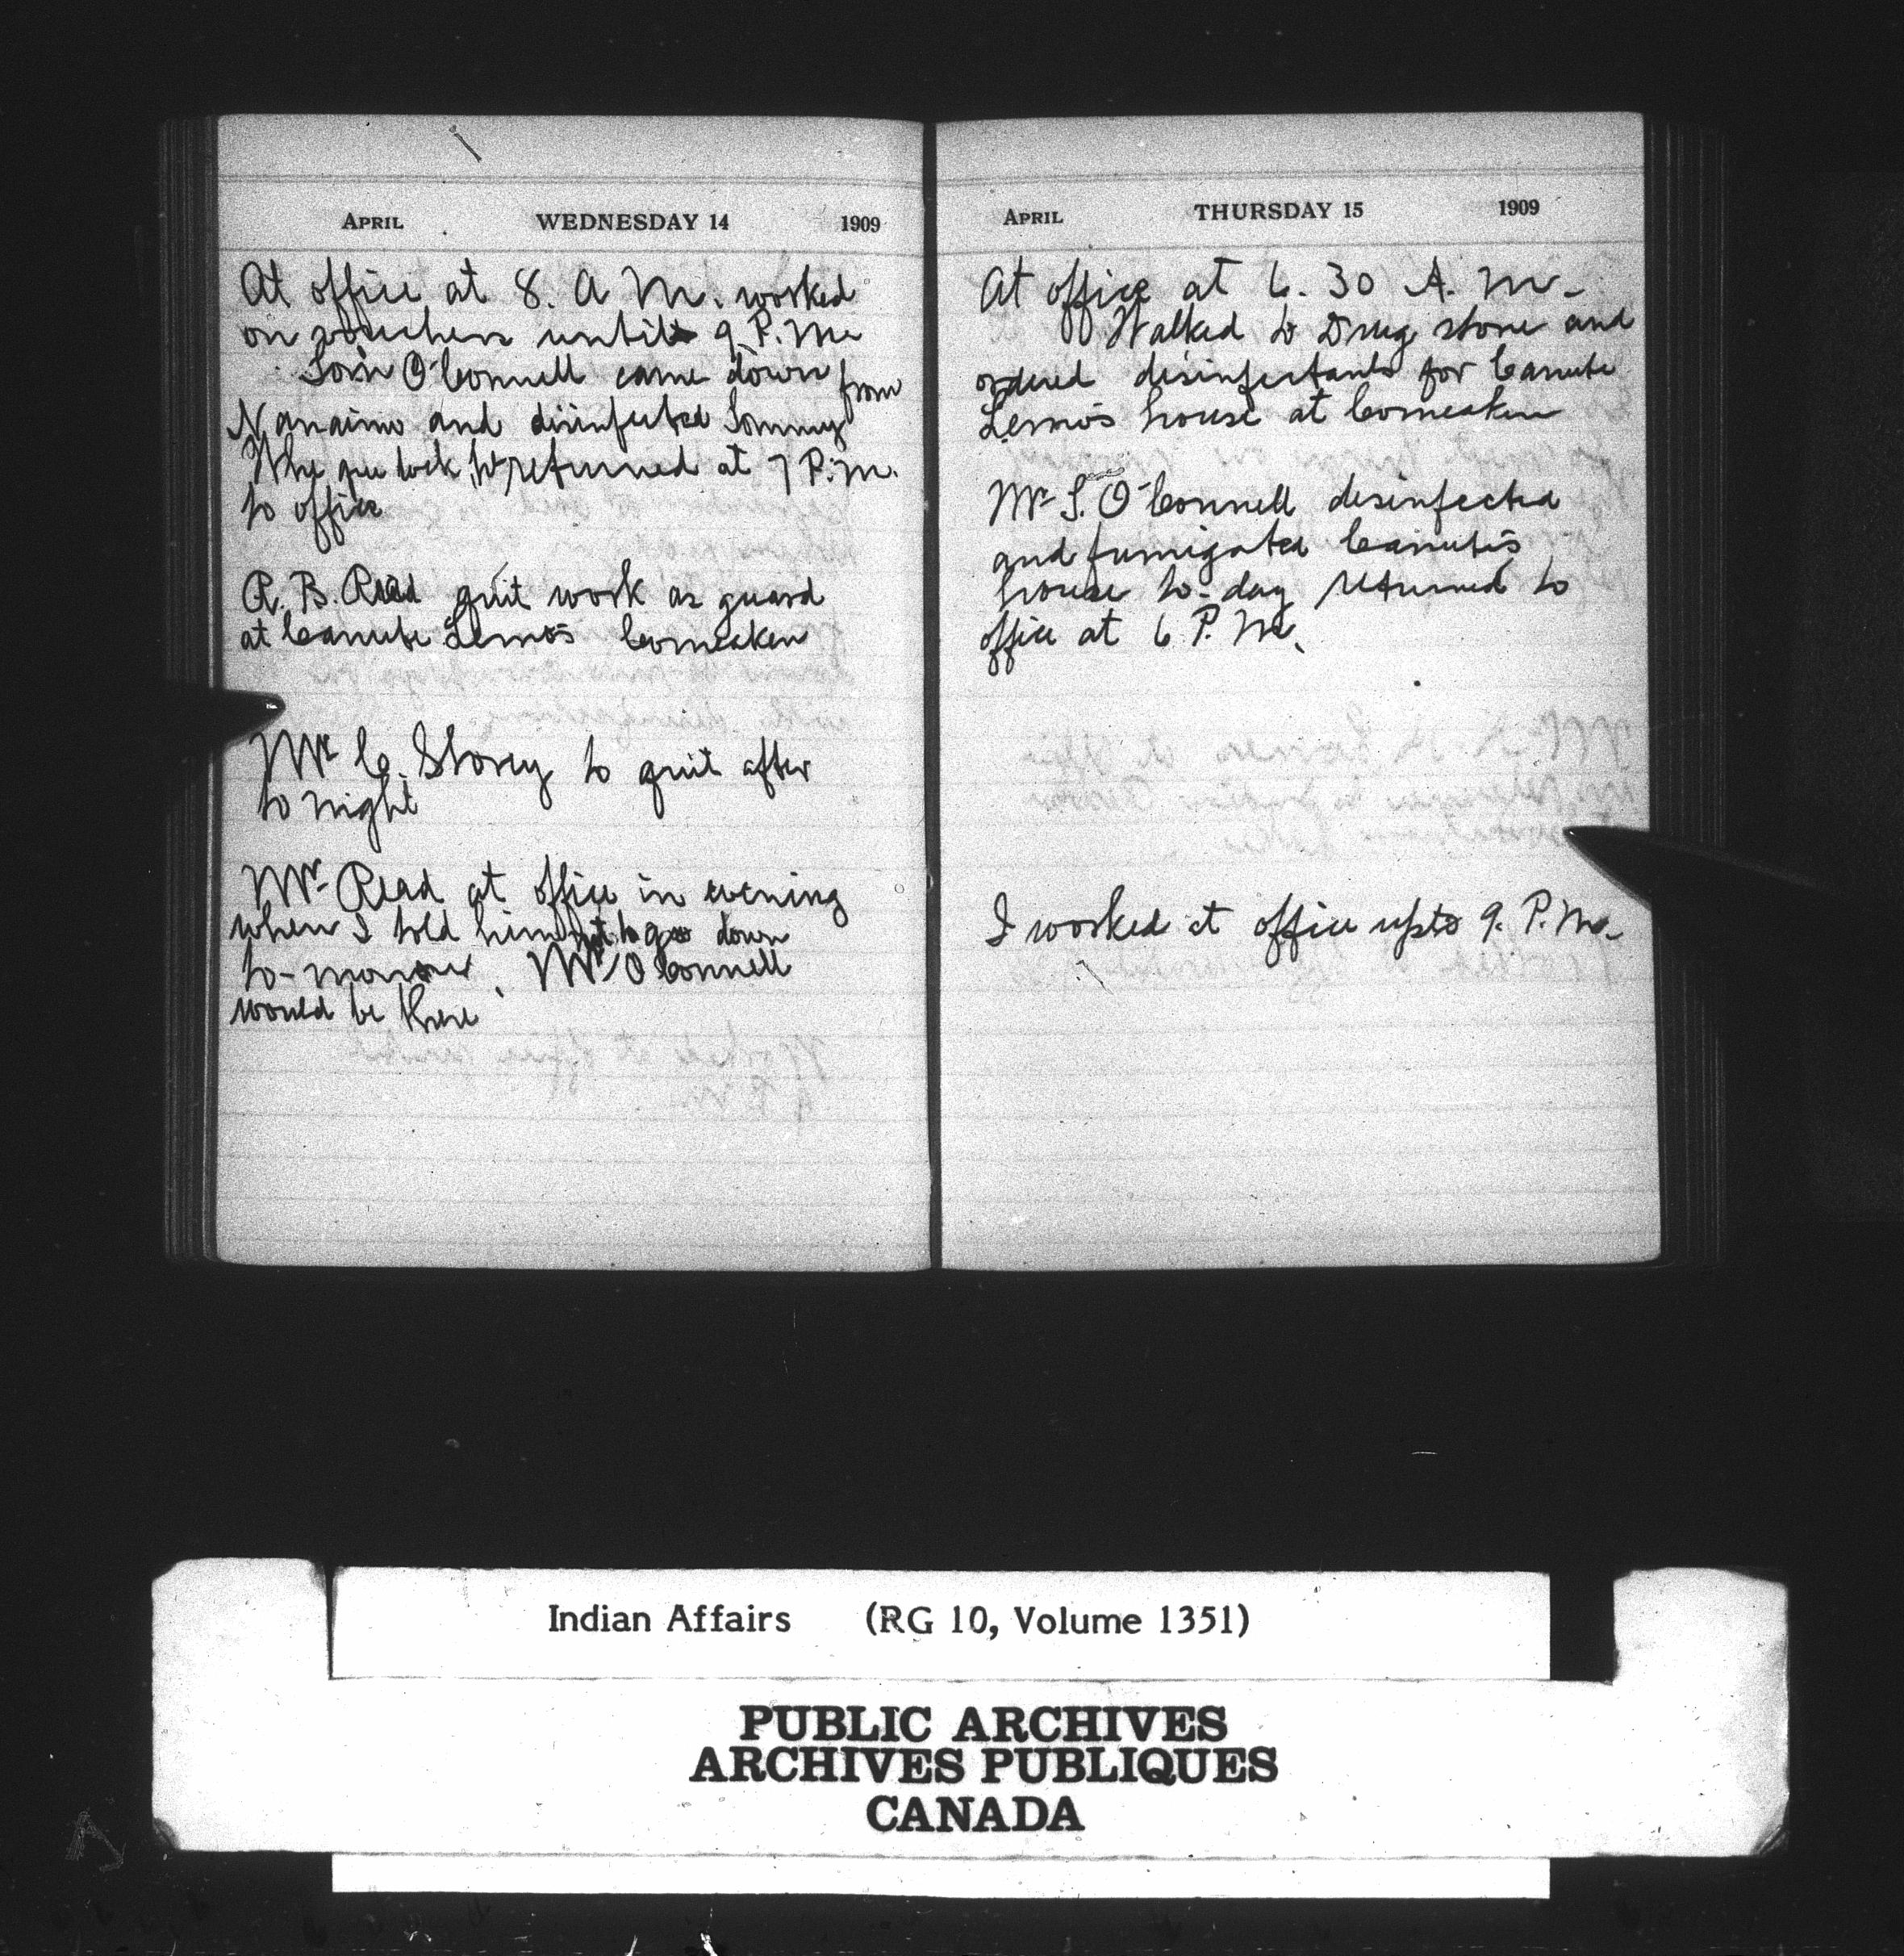 APRIL WEDNESDAY 14 1909
At office at 8. A M. worked
on vouchers until 9 P. M.
Tom O'Connell came down from
Nanaimo and disinfected Tommy
returned at 7 P. M.
to office
R. B. Read quit work as guard
at Canute Lemo's Comeaken
Mr C. Storey to quit after
to night
Mr Read at office in evening
when I told him not to go down
to-morrow, Mr O'Connell
would be there
APRIL THURSDAY 15 1909
At office at 6. 30 A. M.
Walked to Drug store and
ordered disinfectants for Canute
Lemo's house at Comeaken
Mr T. O'Connell disinfected
and fumigated Canute's
house to-day returned to
office at 6 P. M.
I worked at office up to 9. P. M.
Indian Affairs (RG 10, Volume 1351)
PUBLIC ARCHIVES
ARCHIVES PUBLIQUES
CANADA